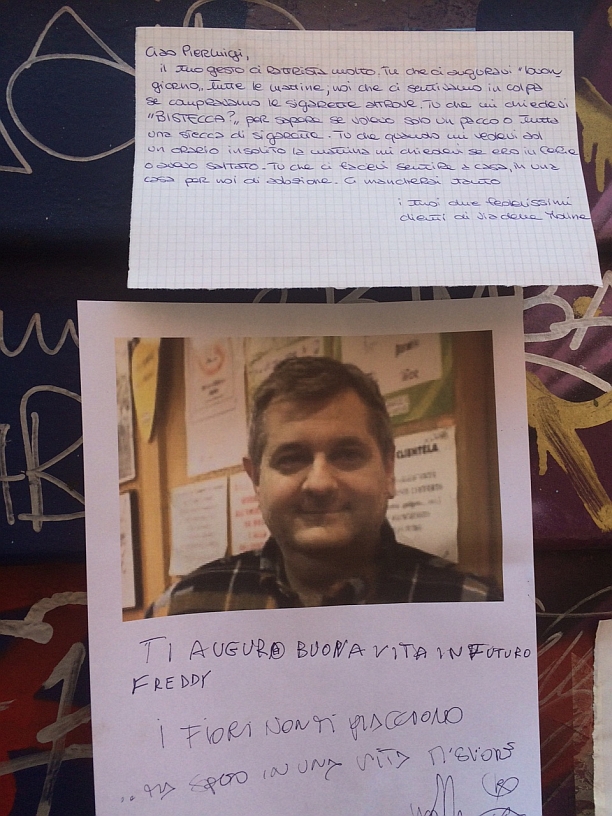 Ciao Pierluigi,
il tuo gesto ci rattrista molto. Tu che ci auguravi "buon
giorno" tutte le mattine, noi che ci sentivamo in colpa
se compravamo le sigarette altrove. Tu che mi chiedevi
"BISTECCA?" per sapere se volevo solo un pacco o tutta
una stecca di sigarette. Tu che quando mi vedevi ad
un orario insolito la mattina mi chiedevi se ero in ferie
o avevo saltato. Tu che ci facevi sentire a casa, in una
casa per noi di adozione. Ci mancherai tanto
i tuoi due fedelissimi
clienti di via delle Moline
CLIENTELA
TI AUGURO BUONA VITA IN FUTURO
FREDDY
I FIORI NON TI PIACCIONO
..MA SPERO IN UNA VITA MIGLIORE